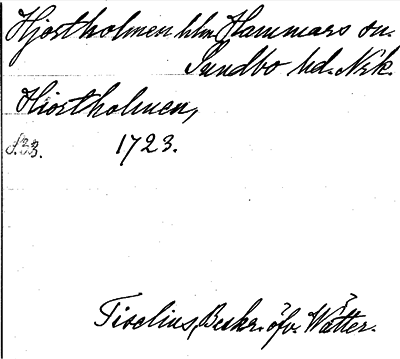 Hjortholmen hlm, Hammars sn.
Sundbo hd. Nrk.
Hiortholmen,
S. 33. 1723.
Tiselius, Beskr. öfv. Wätter.